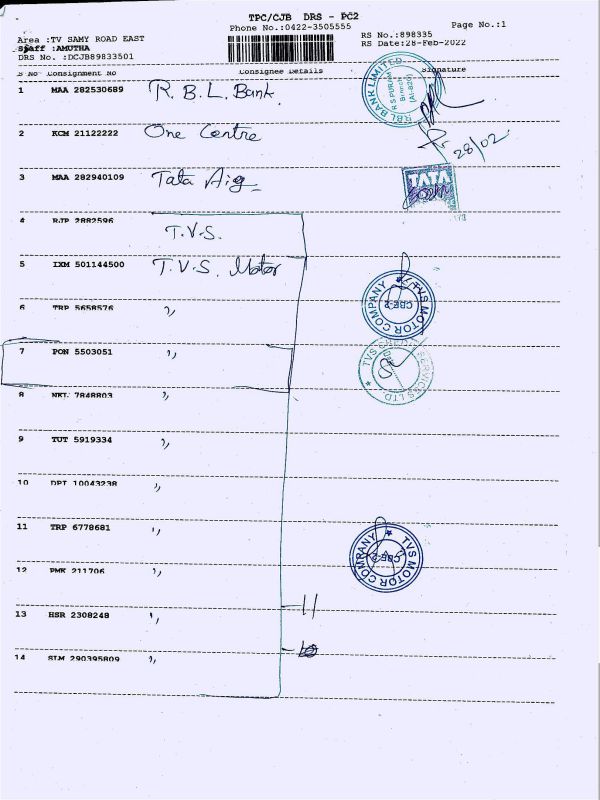 TPC/CJB DRS - PC2
Phone No.:0422-3505555
Page No.:1
Area :TV SAMY ROAD EAST
Staff :AMUTHA
DRS No. :DCJB89833501
RS No.:898335
RS Date:28-Feb-2022
S No Consignment No Consignee Details Signature
1 MAA 282530689 R.B.L. Bank.
RBL BANK LIMITED
R S PURAM
Branch
2 KCM 21122222 One Centre
28/02
3 MAA 282940109 Tata Aig
TATA
4 RJP 2882596 T.V.S.
5 IXM 501144500 T.V.S. Motor
TVS MOTOR COMPANY
CBE-2
6 TRP 5658576 ,,
7 PON 5503051 ,,
TVS SERVICES LTD.
8 NKL 7848803 ,,
9 TUT 5919334 ,,
10 DPI 10043238 ,,
11 TRP 6778681 ,,
TVS MOTOR COMPANY
CBE-2
12 PMK 211706 ,,
- 11
13 HSR 2308248 ,,
14 SLM 290395809 ,,